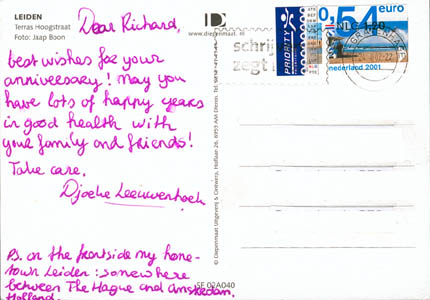 LEIDEN
Terras Hoogstraat
Foto: Jaap Boon
Dear Richard,
best wishes for your
anniversary! May you
have lots of happy years
in good health with
your family and friends!
Take care.
Djoeke Leeuwenhoek
P.S. on the frontside my home-
town Leiden: somewhere
between The Hague and Amsterdam.
Holland.
SF 02A040
ID
www.diepenmaat.nl
© Diepenmaat Uitgeverij &
schrij
zegt
PRIORITY
0,54 euro
NLG 1,20
nederland 2001